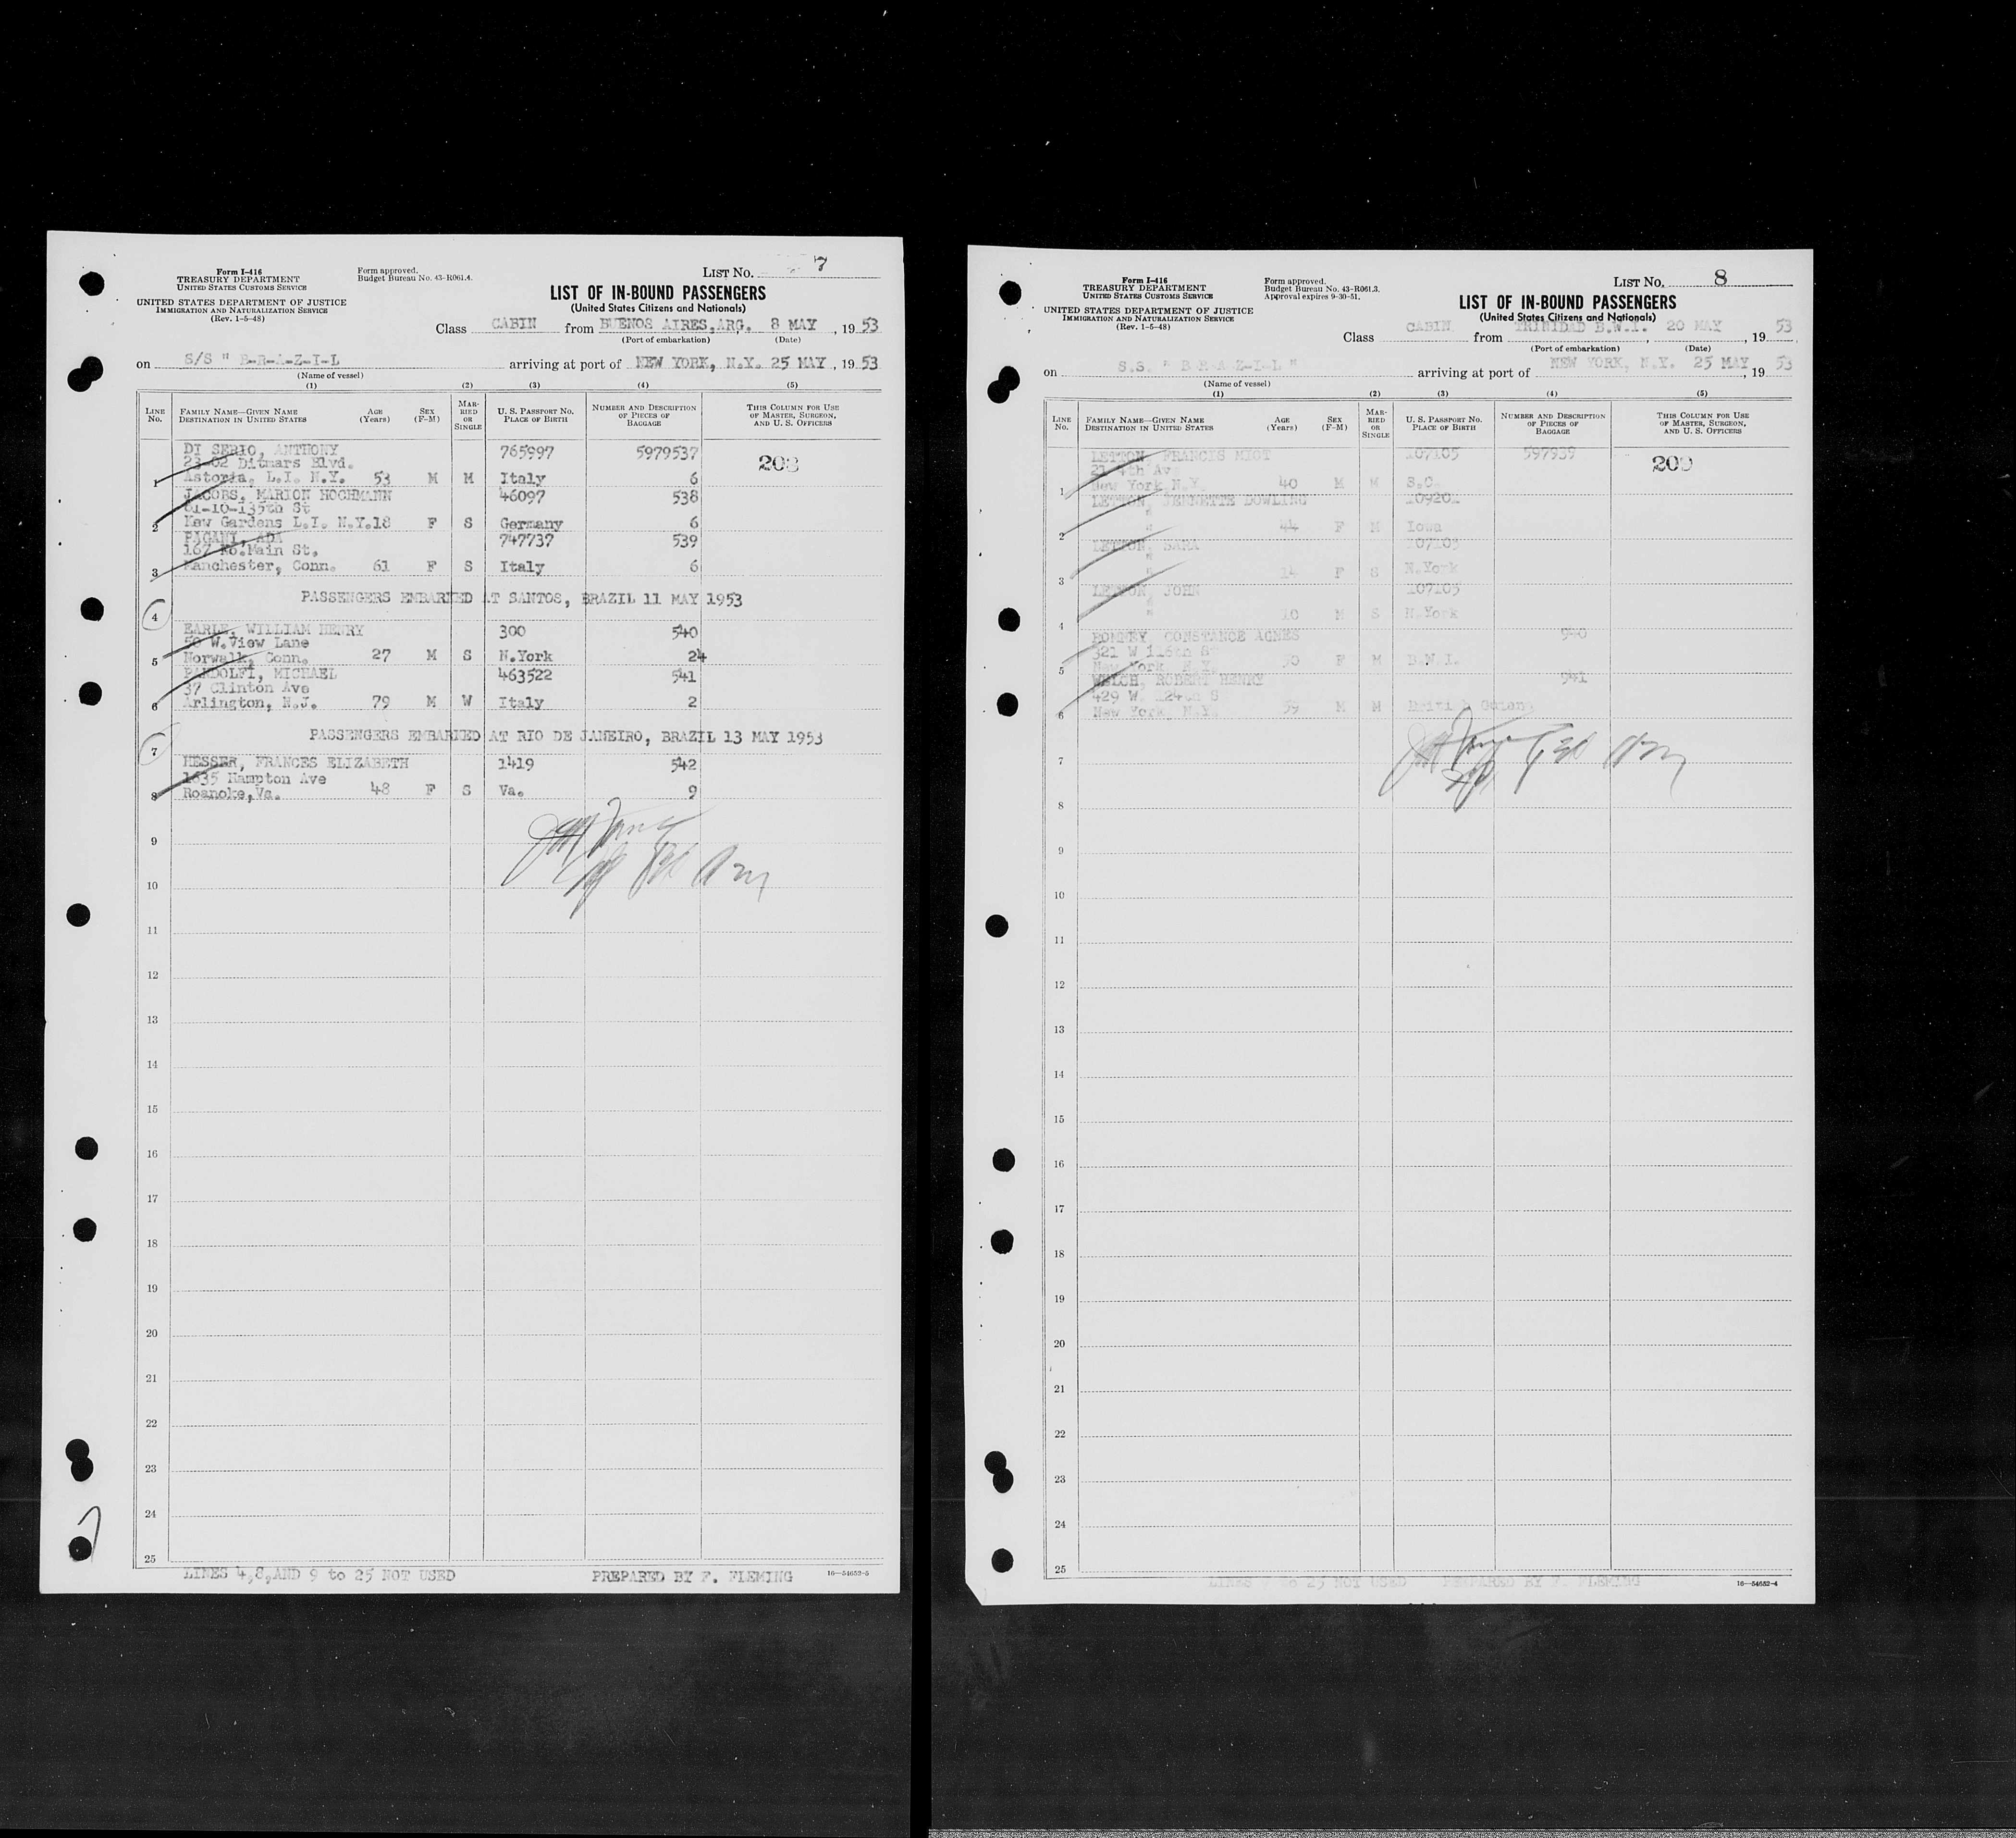 Form I-416
TREASURY DEPARTMENT
UNITED STATES CUSTOMS SERVICE
UNITED STATES DEPARTMENT OF JUSTICE
IMMIGRATION AND NATURALIZATION SERVICE
(Rev. 1-5-48)
Form approved.
Budget Bureau No. 43-R061.4.
LIST NO. 7
LIST OF IN-BOUND PASSENGERS
(United States Citizens and Nationals)
Class CABIN from BUENOS AIRES, ARG. 8 MAY, 1953
(Port of embarkation) (Date)
on S/S " B-R-A-Z-I-L arriving at port of NEW YORK, N.Y. 25 MAY, 1953
(Name of vessel)
(1) (2) (3) (4) (5)
LINE NO. FAMILY NAME—GIVEN NAME DESTINATION IN UNITED STATES AGE (Years) SEX (F-M) MARRIED OR SINGLE U. S. PASSPORT NO. PLACE OF BIRTH NUMBER AND DESCRIPTION OF PIECES OF BAGGAGE THIS COLUMN FOR USE OF MASTER, SURGEON, AND U. S. OFFICERS
DI SERIO, ANTHONY 765997 5979537
23-02 Ditmars Blvd.
1 Astoria, L.I. N.Y. 53 M M Italy 6
JACOBS, MARION HOCHMANN 46097 538
81-10-135th St
2 Kew Gardens L.I. N.Y. 18 F S Germany 6
PAGANI, ADA 747737 539
167 No. Main St,
3 Manchester, Conn. 61 F S Italy 6
4 PASSENGERS EMBARKED AT SANTOS, BRAZIL 11 MAY 1953
EARLE, WILLIAM HENRY 300 540
50 W. View Lane
5 Norwalk, Conn. 27 M S N.York 24
PANDOLFI, MICHAEL 463522 541
37 Clinton Ave
6 Arlington, N.J. 79 M W Italy 2
7 PASSENGERS EMBARKED AT RIO DE JANEIRO, BRAZIL 13 MAY 1953
MESSER, FRANCES ELIZABETH 1419 542
1635 Hampton Ave
8 Roanoke, Va. 48 F S Va. 9
9
10
11
12
13
14
15
16
17
18
19
20
21
22
23
24
25
LINES 4,8,AND 9 to 25 NOT USED PREPARED BY F. FLEMING 16—54652-5
Form I-416
TREASURY DEPARTMENT
UNITED STATES CUSTOMS SERVICE
UNITED STATES DEPARTMENT OF JUSTICE
IMMIGRATION AND NATURALIZATION SERVICE
(Rev. 1-5-48)
Form approved.
Budget Bureau No. 43-R061.3.
Approval expires 9-30-51.
LIST NO. 8
LIST OF IN-BOUND PASSENGERS
(United States Citizens and Nationals)
Class CABIN from TRINIDAD B.W.I. 20 MAY, 1953
(Port of embarkation) (Date)
on S.S. " B-R-A-Z-I-L " arriving at port of NEW YORK, N.Y. 25 MAY, 1953
(Name of vessel)
(1) (2) (3) (4) (5)
LINE NO. FAMILY NAME—GIVEN NAME DESTINATION IN UNITED STATES AGE (Years) SEX (F-M) MARRIED OR SINGLE U. S. PASSPORT NO. PLACE OF BIRTH NUMBER AND DESCRIPTION OF PIECES OF BAGGAGE THIS COLUMN FOR USE OF MASTER, SURGEON, AND U. S. OFFICERS
LETTON, FRANCIS MIOT 107105 597939 200
1 New York N.Y. 40 M M S.C.
LETTON, JENNETTE DOWLING
2 " 44 F M Iowa
LETTON, SARA
3 " 14 F S N.York
LETTON, JOHN 107105
4 " 10 M S N.York
CONSTANCE AGNES 940
321 W 116th St
5 New York N.Y. 50 F M B.W.I.
WELCH, ROBERT HENRY 941
429 W.
6 New York, N.Y. 59 M M
7
8
9
10
11
12
13
14
15
16
17
18
19
20
21
22
23
24
25
LINES to 25 NOT USED PREPARED BY F. FLEMING
16—54652-4